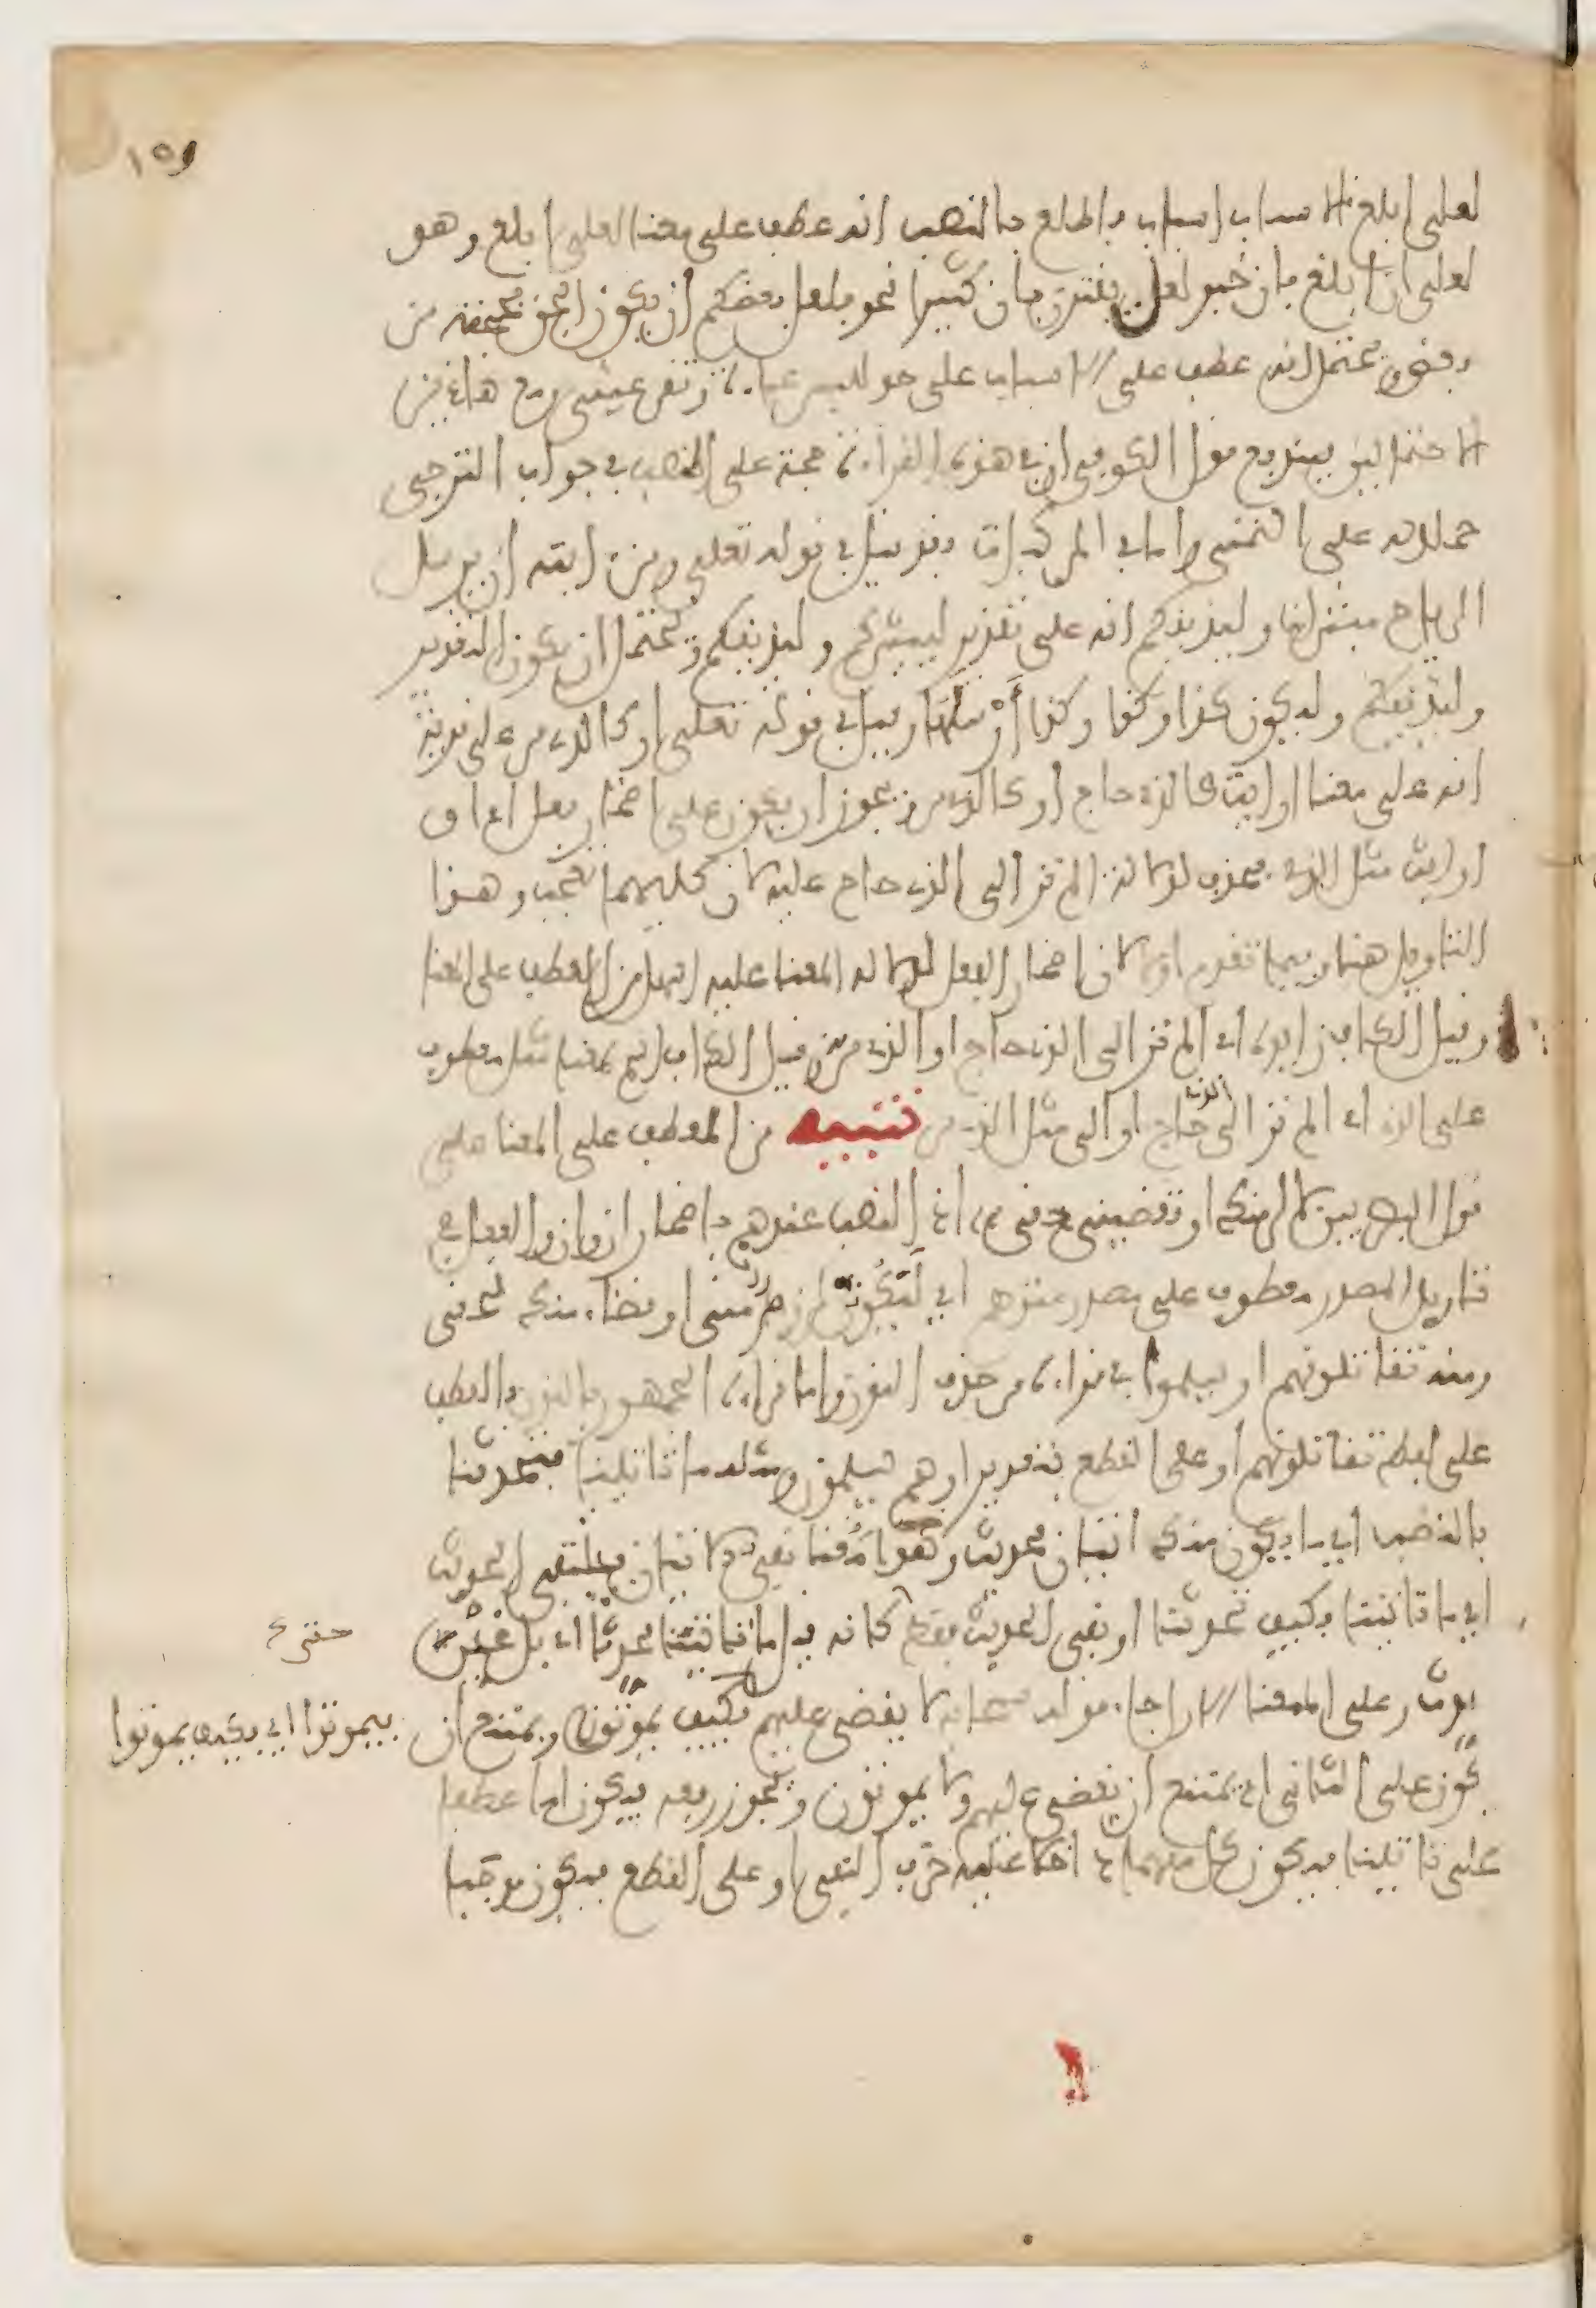 ١٥٩
لعلي ابلغ الاسباب اسباب فاطلع بالنصب انه عطف على معنا لعلي ابلغ وهو
لعلي ان ابلغ فان خبر لعل يقترن بان كثيرا نحو فلعل بعضكم ان يكون الحن بحجته من
بعض ويحتمل انه عطف على الاسباب على حد للبس عباءة وتقر عيني ومع هاذين
الاحتمالين يندفع قول الكوفيين ان في هذه القراءة حجة على النصب في جواب الترجي
حملا له على التمني واما في المركبات فقد قيل في قوله تعلى ومن ءايته ان يرسل
الرياح مبشرات وليذيقكم انه على تقدير ليبشركم وليذيقكم ويحتمل ان يكون التقدير
وليذيقكم وليكون كذا وكذا وكذا أرسلها وقيل في قوله تعلى او كالذي مر على قرية
انه على معنا ارايت كالذي حاج او كالذي مر ويجوز ان يكون على اضمار فعل اي او
ارايت مثل الذي فحذف لدلالة الم تر الى الذي حاج عليه لان كليهما تعجب وهذا
التاويل هنا وفيما تقدم اولى لان اضمار الفعل لدلالة المعنا عليه اسهل من العطف على المعنا
وقيل الكاف زايدة اي الم تر الى الذي حاج او الذي مر وقيل الكاف اسم بمعنا مثل معطوف
على الذي اي الم تر الى الذي حاج او الى مثل الذي مر تنبيه من العطف على المعنا على
قول البصريين لالزمنك او تقضيني حقي اذ النصب عندهم باضمار ان وان والفعل في
تاويل المصدر معطوف على مصدر متوهم اي ليكونن لزوم مني او قضاء منك لحقي
ومنه تقاتلونهم او يسلموا في قراءة من حذف النون واما قراءة الجمهور بالنون فالعطف
على لفظ تقاتلونهم او على القطع بتقدير او هم يسلمون ومثله ما تاتينا فتحدثنا
بالنصب اي ما يكون منك اتيان فحديث وهو لنا معنا نفي الاتيان فينتفي الحديث
اي ما تاتينا فكيف تحدثنا او نفي الحديث فقط كانه قيل ما تاتينا محدثا اي بل غير
محدث وعلى المعنا الاول جاء قوله سبحانه لا يقضى عليهم فيموتوا اي فكيف يموتون ويمتنع ان
يكون على الثاني اذ يمتنع ان يقضى عليهم ولا يموتون ويجوز رفعه فيكون اما عطفا
على تاتينا فيكون كل منهما داخلا عليه حرف النفي او على القطع فيكون موجبا